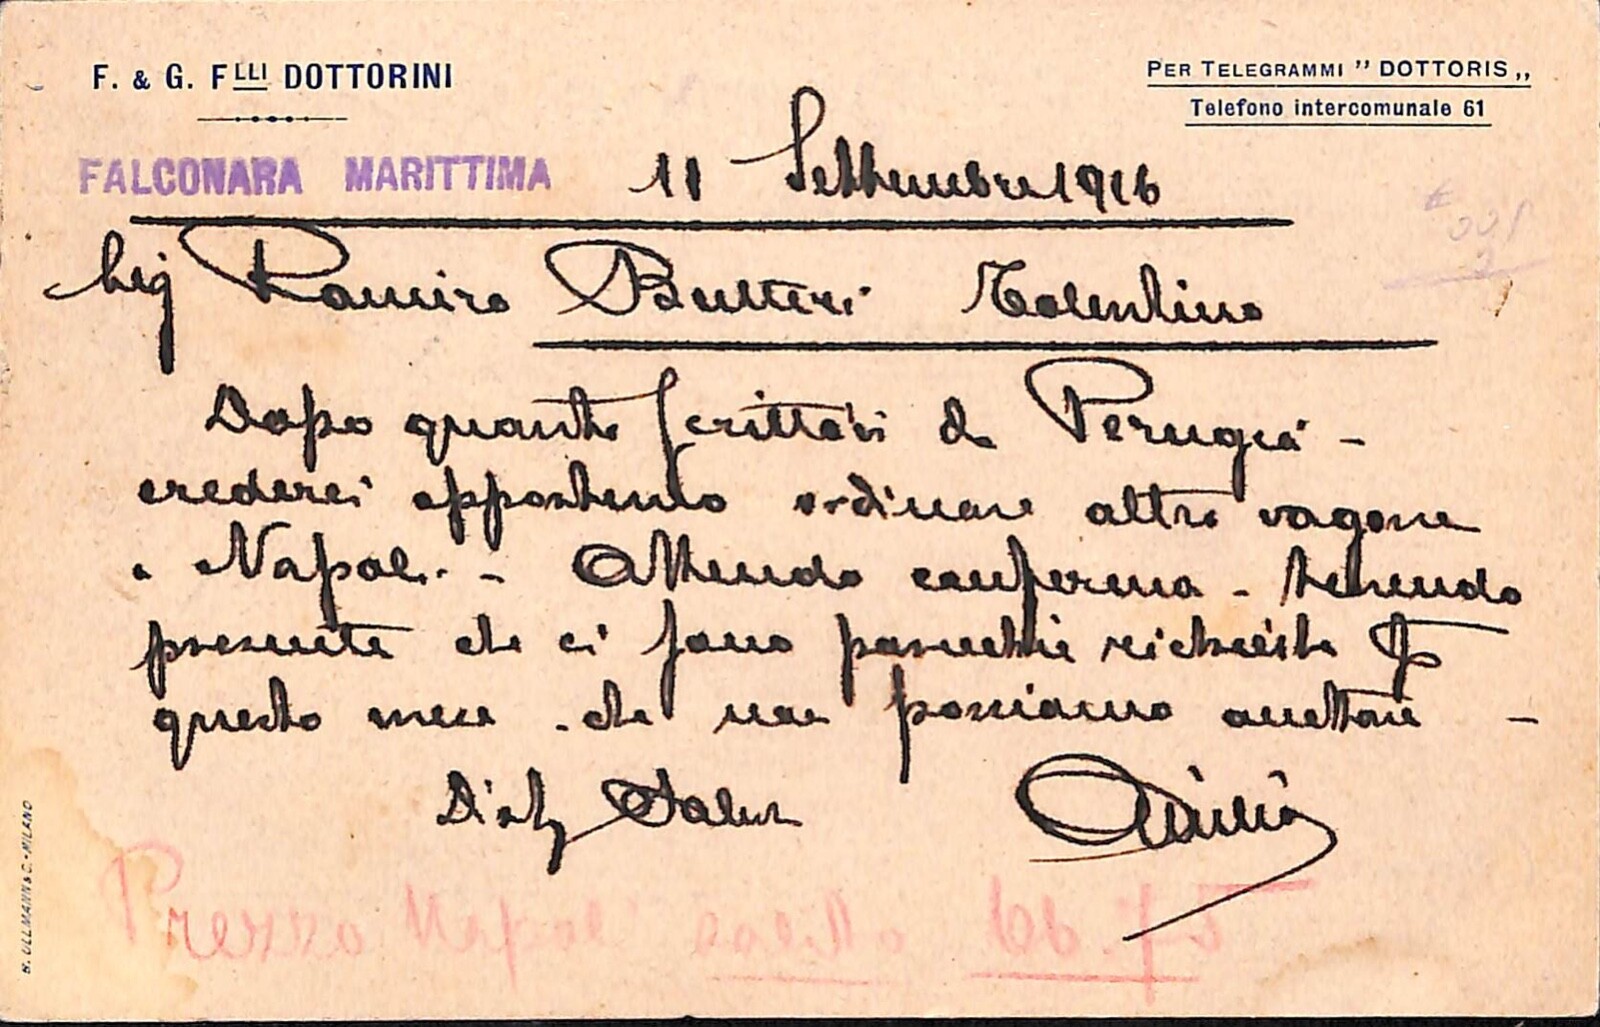 F. & G. Flli DOTTORINI
PER TELEGRAMMI " DOTTORIS „
Telefono intercomunale 61
FALCONARA MARITTIMA 11 Settembre 1916
Sig Ramiro Butteri Tolentino
Dopo quanto scrittovi da Perugia -
crederei opportuno ordinare altro vagone
a Napoli. - Attendo conferma - tenendo
presente che ci sono parecchie richieste
questo mese che non possiamo
Saluti
Prezzo Napoli
B. ULLMANN & C. - MILANO